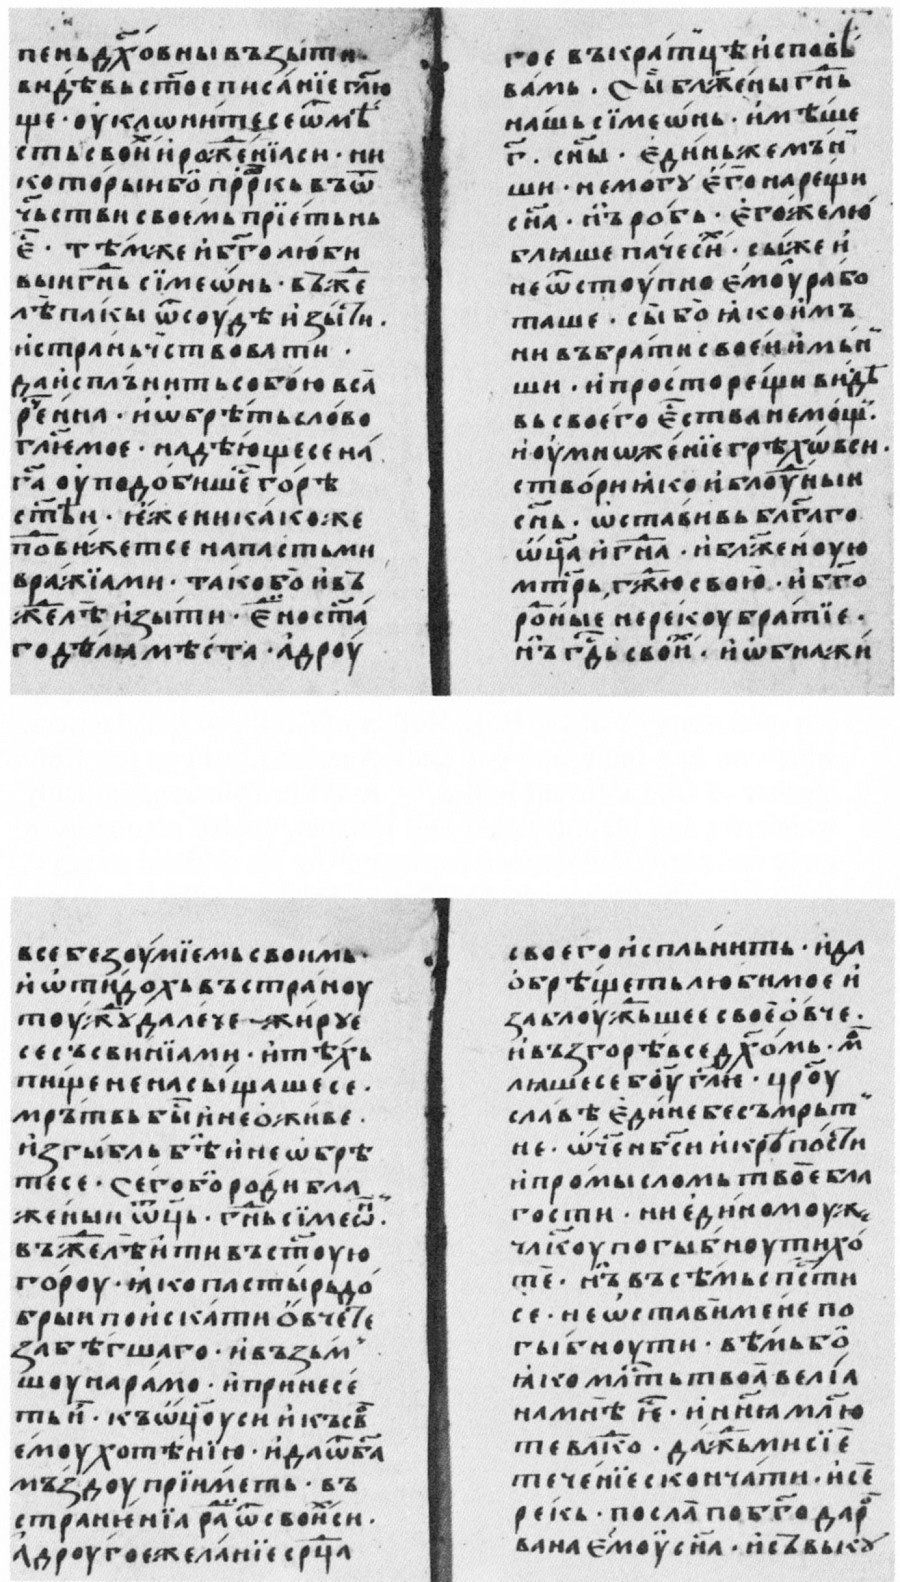 пень дх҃овны въꙁыти·
видѣвь ст҃ое писанїе гл҃ю
ще· ѹклѡнитесе ѿ мѣ
сть своиⷯ и рож҃енїа си· ни
которыи бо прⷪр҃кь въ ѿ
чьстви своемь прїетьнь
ѥ҃· тѣмже и бг҃олюби
выи гн҃ь сїмеѡнь· въж҃е
лѣ пакы ѿсѹдѣ иꙁыти·
и страньчьствовати·
да исплънить собою вса
рⷱ҇енна· и ѡбрѣть слово
гл҃ѥмое· надѣющесе на
га҃ ѹподобишеⷭ҇ горѣ
ст҃ѣи· иже никакоже
повⷣижетсе напастьми
вражїами· тако бо и въ
ж҃елѣ иꙁыти· ѥ҃ но ст҃а
го дѣлꙗ мѣста· а дрѹ
гое въкратцѣ исповѣ
вамь· Сы блж҃ены гн҃ь
нашь сїмеѡнь· имѣше
г҃· сн҃ы· единьже мъни
ши· немогу его нарещи
сн҃а· нь робь· егоже лю
блꙗше паче сиⷯ· сыже и
неѿстѹпно емѹ рабо
таше· сы бо ꙗко имъ
ни въ брати своеи имьи
ши· и просто рещи видѣ
вь своего ѥства немощⷤ·
и ѹмножѥнїе грѣхѡвь си·
створи ꙗко и блѹныи
сн҃ь· ѡставивь благаго
ѿц҃а и гн҃а· и блж҃енѹю
мт҃рь, гж҃ю свою· и бг҃о
роⷣныѥ не рекѹ братїе·
нь гⷭ҇дь своиⷯ· и ѡбилжи
все беꙁѹмїемь своимь·
и ѡтидохь въ странѹ
тѹж҃у далече жируе
се съ свинїами· и тѣхь
пище не насыщашесе·
мрътвь бы и не оживе·
иꙁгыбль бѣ и не ѡбрѣ
тесе· Сего бо ради бла
жены ѿц҃ь· гн҃ь сїмеѡⷩ·
въж҃елѣ ити въ ст҃ѹю
горѹ· ꙗко пастырь до
брыи поискати овчете
ꙁабѣгшаго· и въꙁьм
шѹ на рамо· и принесе
ть и· къ ѿц҃ѹ си и къ св
емѹ хотѣнїю· и да ѿ ба҃
мъꙁдѹ прїиметь· въ
странѥнїа раⷣ ѿ своиⷯ си·
А дрѹгое желанїе срⷣца
своего испльнить· и да
обрѣщеть любимое и
ꙁаблѹжⷣьшее своѥ овче·
и въꙁгорѣвсе дх҃омь· м
лꙗшесе бѹ҃ гл҃ѥ· цр҃ѹ
славѣ едине бесъмрьт
не· ѿче нбⷭ҇и и крѣпости
и промысломь твоѥ бла
гости· ни единомѹж
чл҃кѹ погыбнѹти хо
те· нь въсѣмь спⷭ҇ти
се· не ѡстави мене по
гыбнѹти· вѣмь бо
ꙗко млⷭ҇ть твоа велїа
на мнѣ ѥⷭ҇· и нн҃ꙗ мл҃ю
те влⷣко· дажⷣьми сїѥ
теченїе скончати· и се
рекь· посла по бг҃о дар
вана емѹ сн҃а· и съвыку